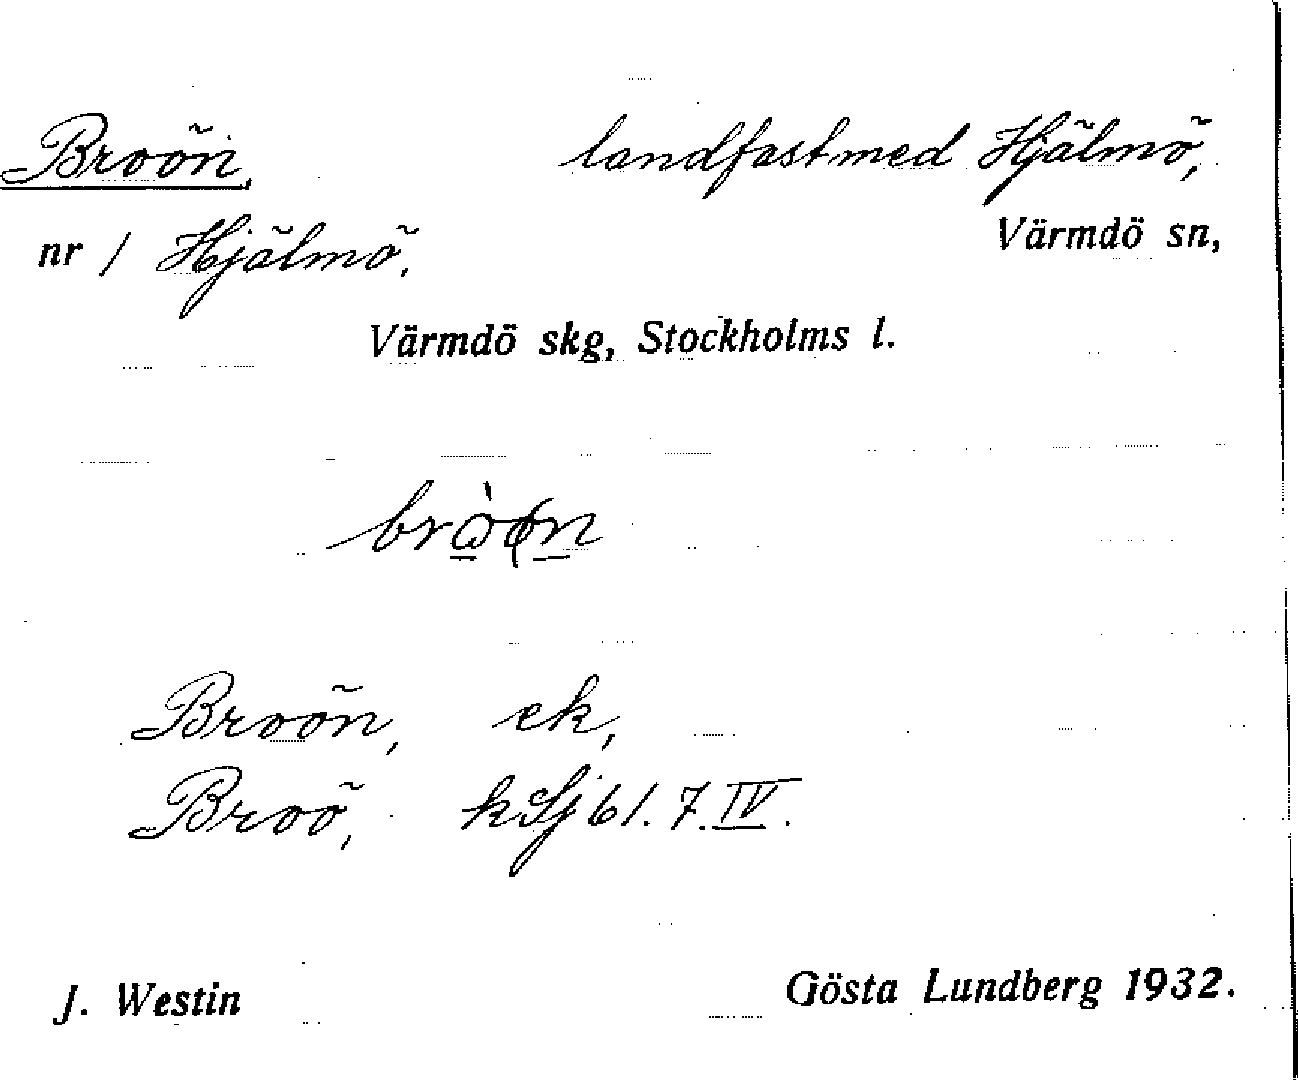 Broön, landfast med Hjälmö,
nr 1 Hjälmö. Värmdö sn,
Värmdö skg, Stockholms l.
Broön, ek,
Broö, kSj 61. 7. IV.
J. Westin Gösta Lundberg 1932.